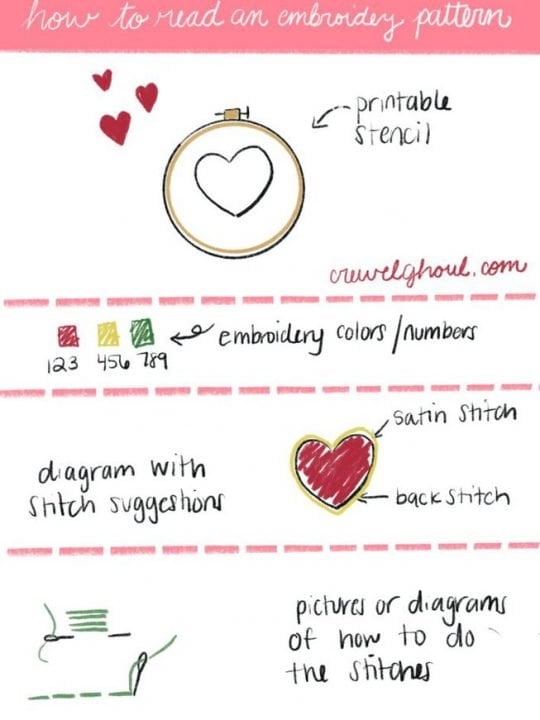 how to read an embroidey pattern
printable
stencil
crewelghoul.com
embroidery colors/numbers
123 456 789
satin stitch
diagram with
stitch suggestions
back stitch
pictures or diagrams
of how to do
the stitches